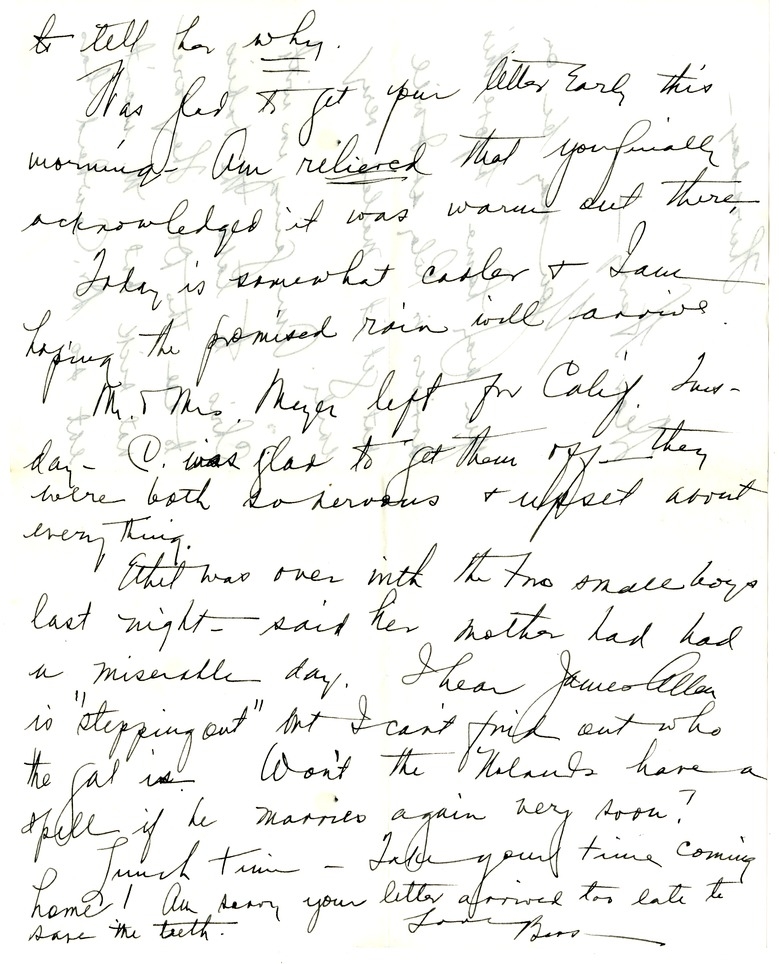 to tell her why.
Was glad to get your letter early this
morning - Am relieved that you finally
acknowledged it was warm out there,
Today is somewhat cooler & I am
hoping the promised rain will arrive.
Mr. & Mrs. Meyer left for Calif. Tues-
day - D. was glad to get them off - they
were both so nervous & upset about
everything.
Ethel was over with the two small boys
last night - said her mother had had
a miserable day. I hear James Allen
is "stepping out" but I can't find out who
the gal is. Won't the Nolands have a
spell if he marries again very soon?
Lunch time - Take your time coming
home! Am sorry your letter arrived too late to
save the teeth. Love
Bess